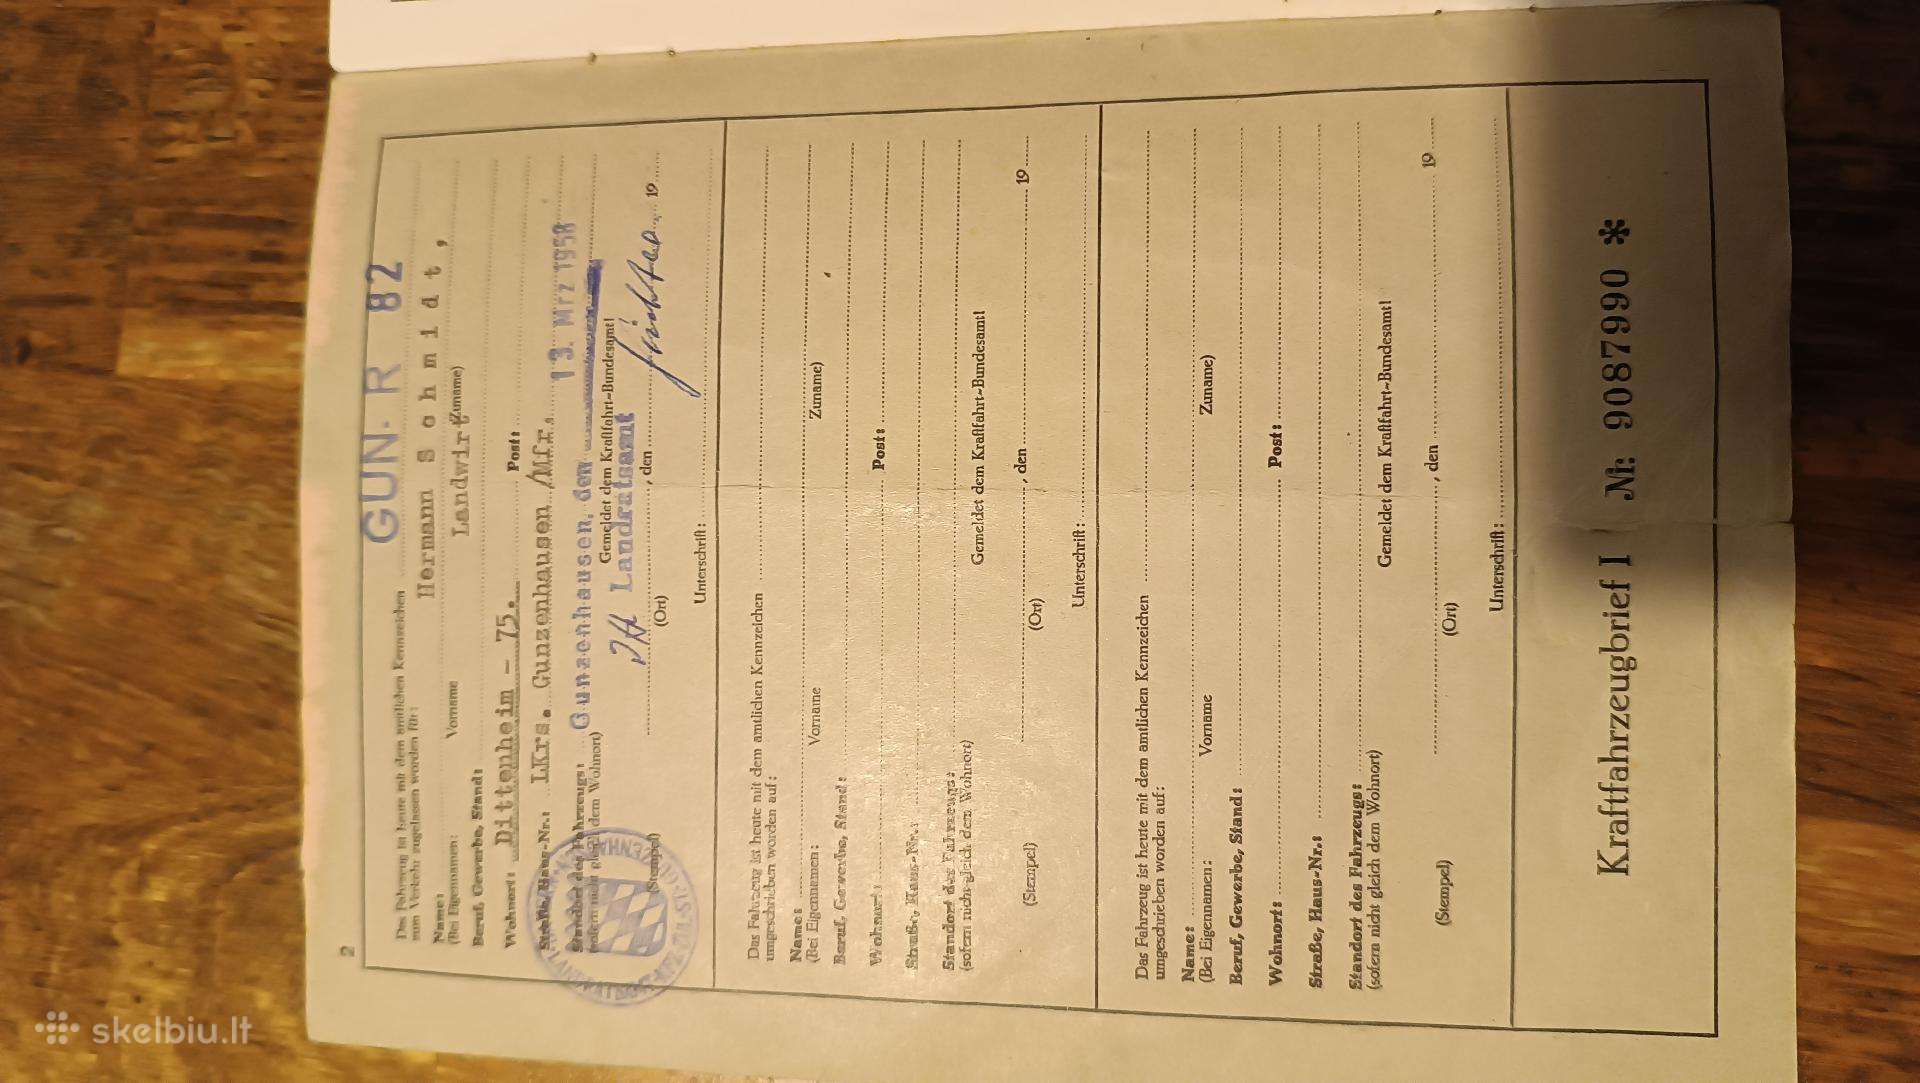 2
GUN-R 82
Das Fahrzeug ist heute mit dem amtlichen Kennzeichen
zum Verkehr zugelassen worden für:
Name: Hermann Schmidt,
(Bei Eigennamen: Vorname Zuname)
Beruf, Gewerbe, Stand: Landwirt
Wohnort: Dittenheim - 75. Post:
Straße, Haus-Nr.: LKrs. Gunzenhausen /Mfr.
Standort des Fahrzeugs: Gunzenhausen, den 13. Mrz 1958
(sofern nicht gleich dem Wohnort)
Gemeldet dem Kraftfahrt-Bundesamt!
Landratsamt
, den 19
(Stempel) (Ort)
Unterschrift:
Das Fahrzeug ist heute mit dem amtlichen Kennzeichen
umgeschrieben worden auf:
Name:
(Bei Eigennamen: Vorname Zuname)
Beruf, Gewerbe, Stand:
Wohnort: Post:
Straße, Haus-Nr.:
Standort des Fahrzeugs:
(sofern nicht gleich dem Wohnort)
Gemeldet dem Kraftfahrt-Bundesamt!
, den 19
(Stempel) (Ort)
Unterschrift:
Das Fahrzeug ist heute mit dem amtlichen Kennzeichen
umgeschrieben worden auf:
Name:
(Bei Eigennamen: Vorname Zuname)
Beruf, Gewerbe, Stand:
Wohnort: Post:
Straße, Haus-Nr.:
Standort des Fahrzeugs:
(sofern nicht gleich dem Wohnort)
Gemeldet dem Kraftfahrt-Bundesamt!
, den 19
(Stempel) (Ort)
Unterschrift:
Kraftfahrzeugbrief I Nr. 9087990 *
skelbiu.lt